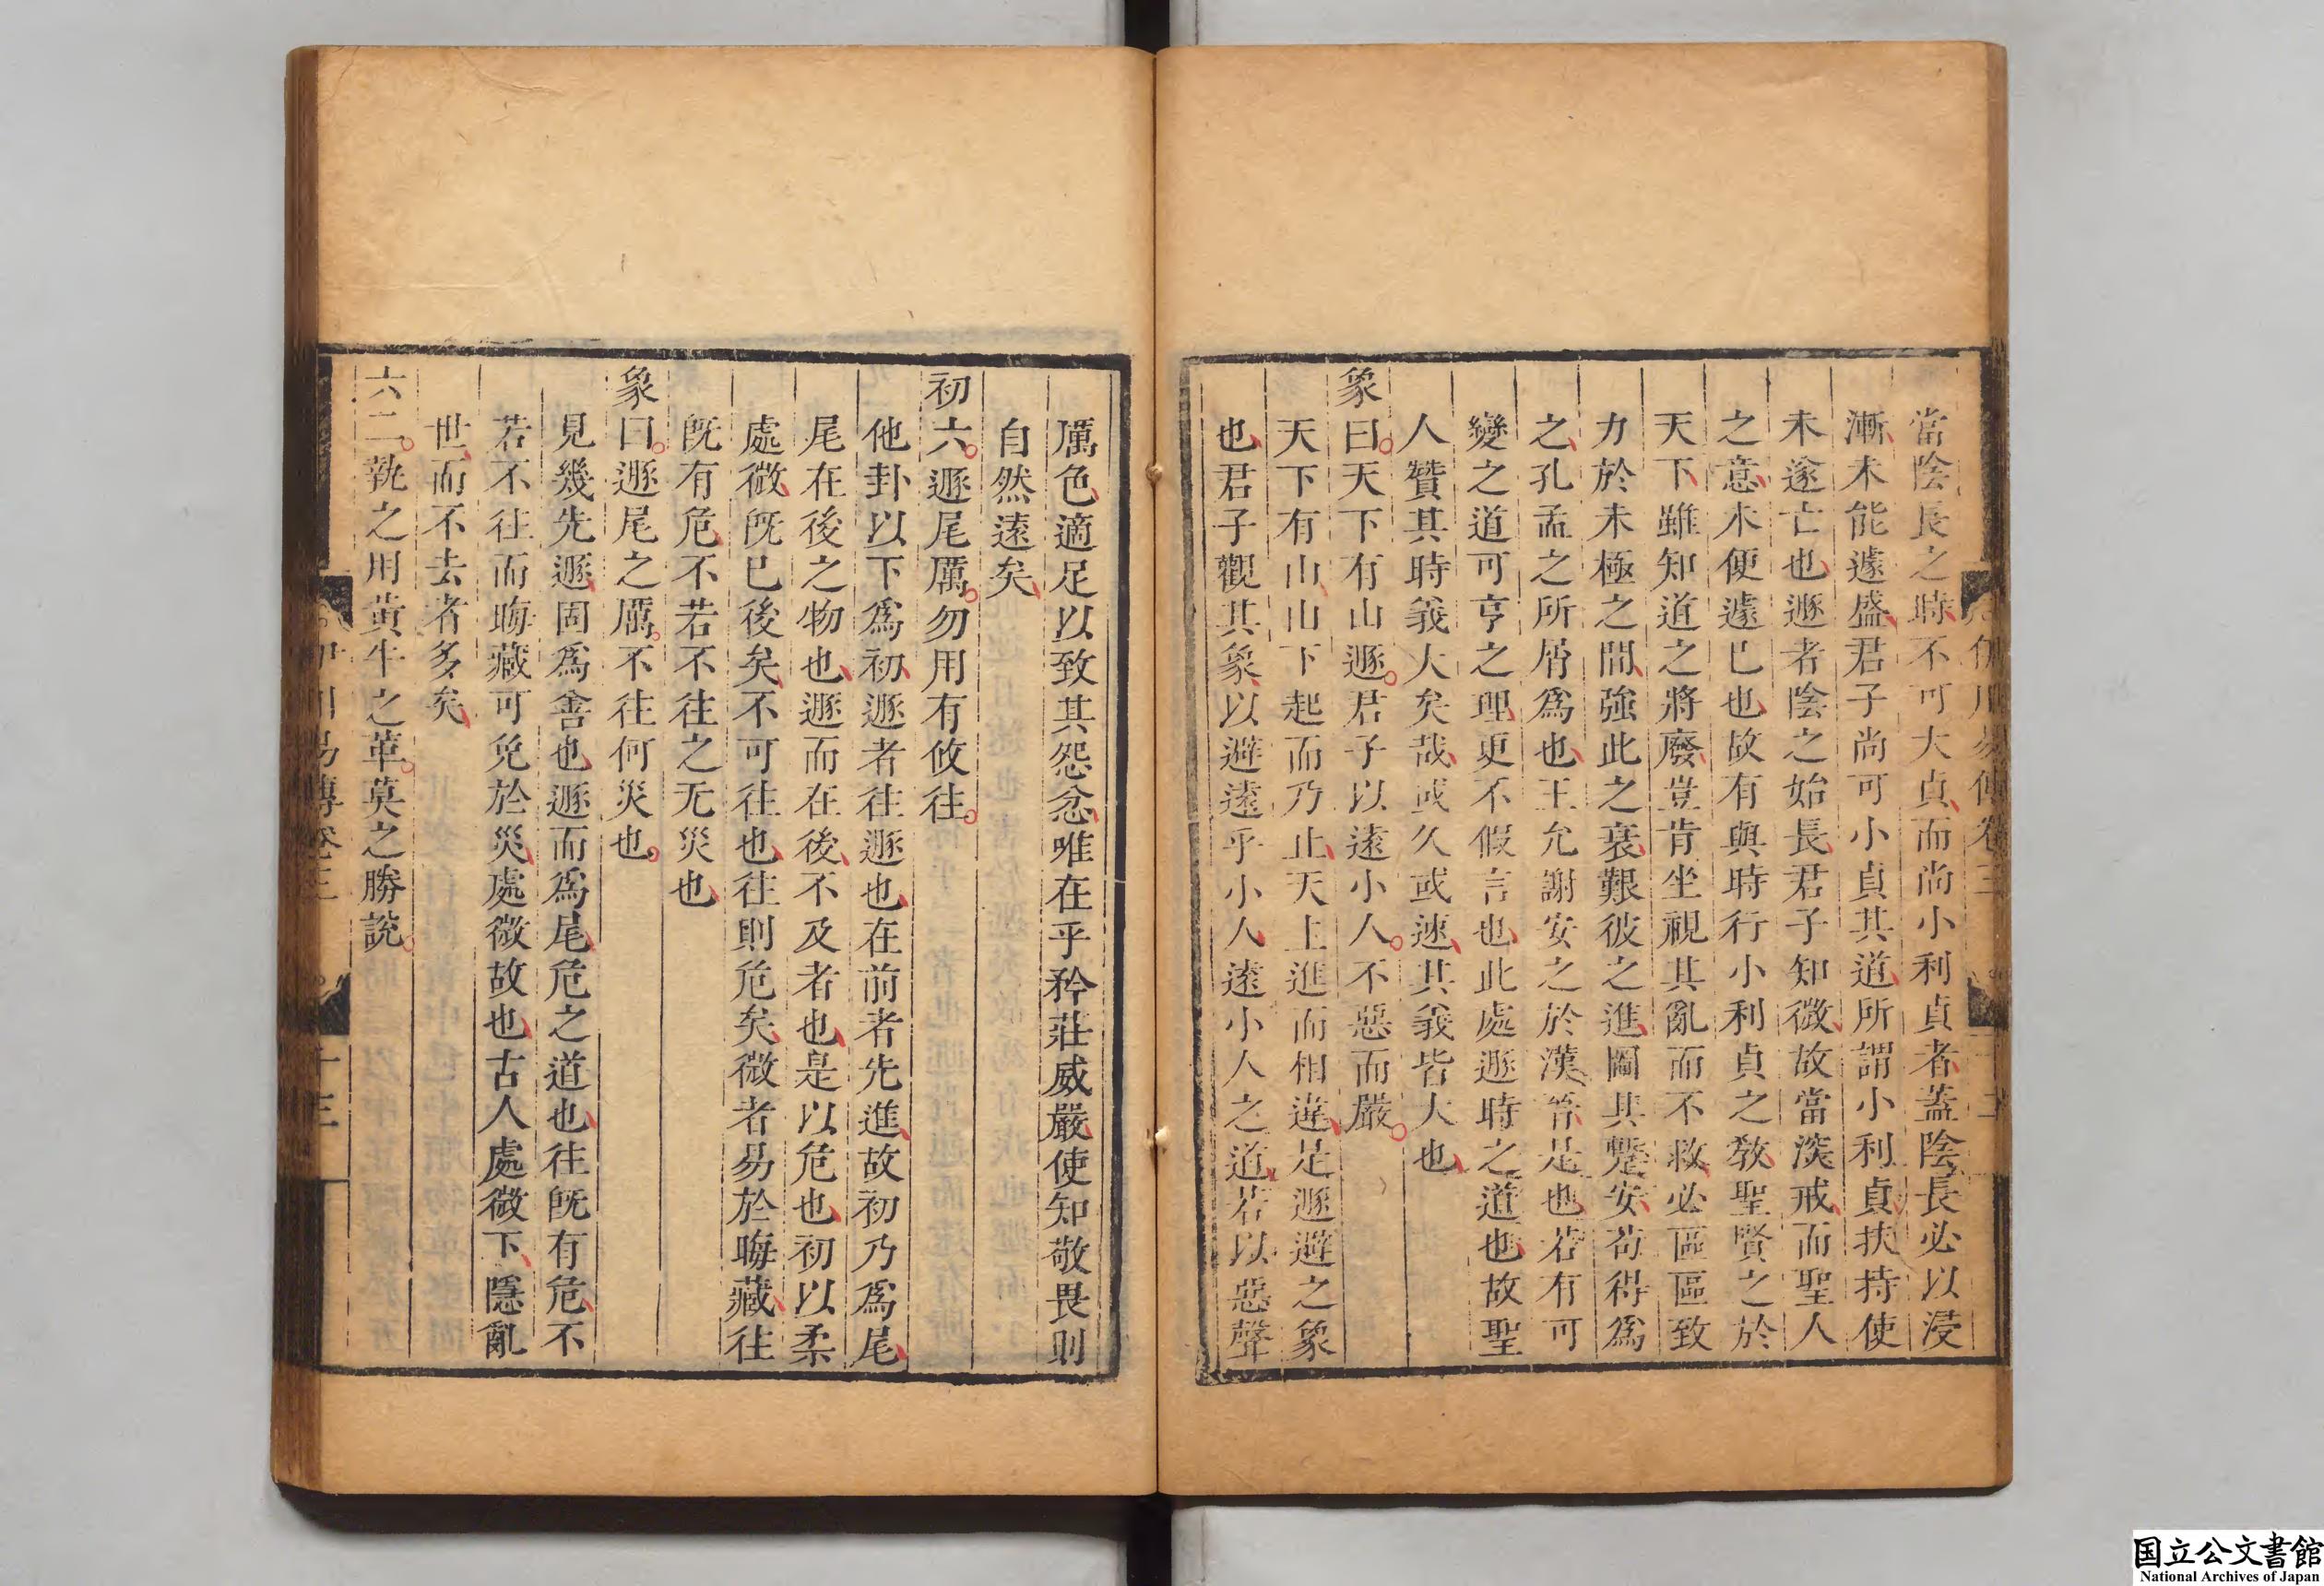 伊川易傳卷三
十二
當陰長之時不可大貞而尚小利貞者蓋陰長必以浸
漸未能遽盛君子尚可小貞其道所謂小利貞扶持使
未遂亡也遯者陰之始長君子知微故當深戒而聖人
之意未便遽已也故有與時行小利貞之敎聖賢之於
天下雖知道之將廢豈肯坐視其亂而不救必區區致
力於未極之間強此之衰艱彼之進圖其蹔安苟得爲
之孔孟之所屑爲也王允謝安之於漢晉是也若有可
變之道可亨之理更不假言也此處遯時之道也故聖
人贊其時義大矣哉或久或速其義皆大也
象曰天下有山遯君子以遠小人不惡而嚴
天下有山山下起而乃止天上進而相違是遯避之象
也君子觀其象以避遠乎小人遠小人之道若以惡聲
厲色適足以致其怨忿唯在乎矜莊威嚴使知敬畏則
自然遠矣
初六遯尾厲勿用有攸往
他卦以下爲初遯者往遯也在前者先進故初乃爲尾
尾在後之物也遯而在後不及者也是以危也初以柔
處微旣已後矣不可往也往則危矣微者易於晦藏往
旣有危不若不往之无災也
象曰遯尾之厲不往何災也
見幾先遯固爲善也遯而爲尾危之道也往旣有危不
若不往而晦藏可免於災處微故也古人處微下隱亂
世而不去者多矣
六二執之用黃牛之革莫之勝說
伊川易傳卷三
十三
国立公文書館
National Archives of Japan